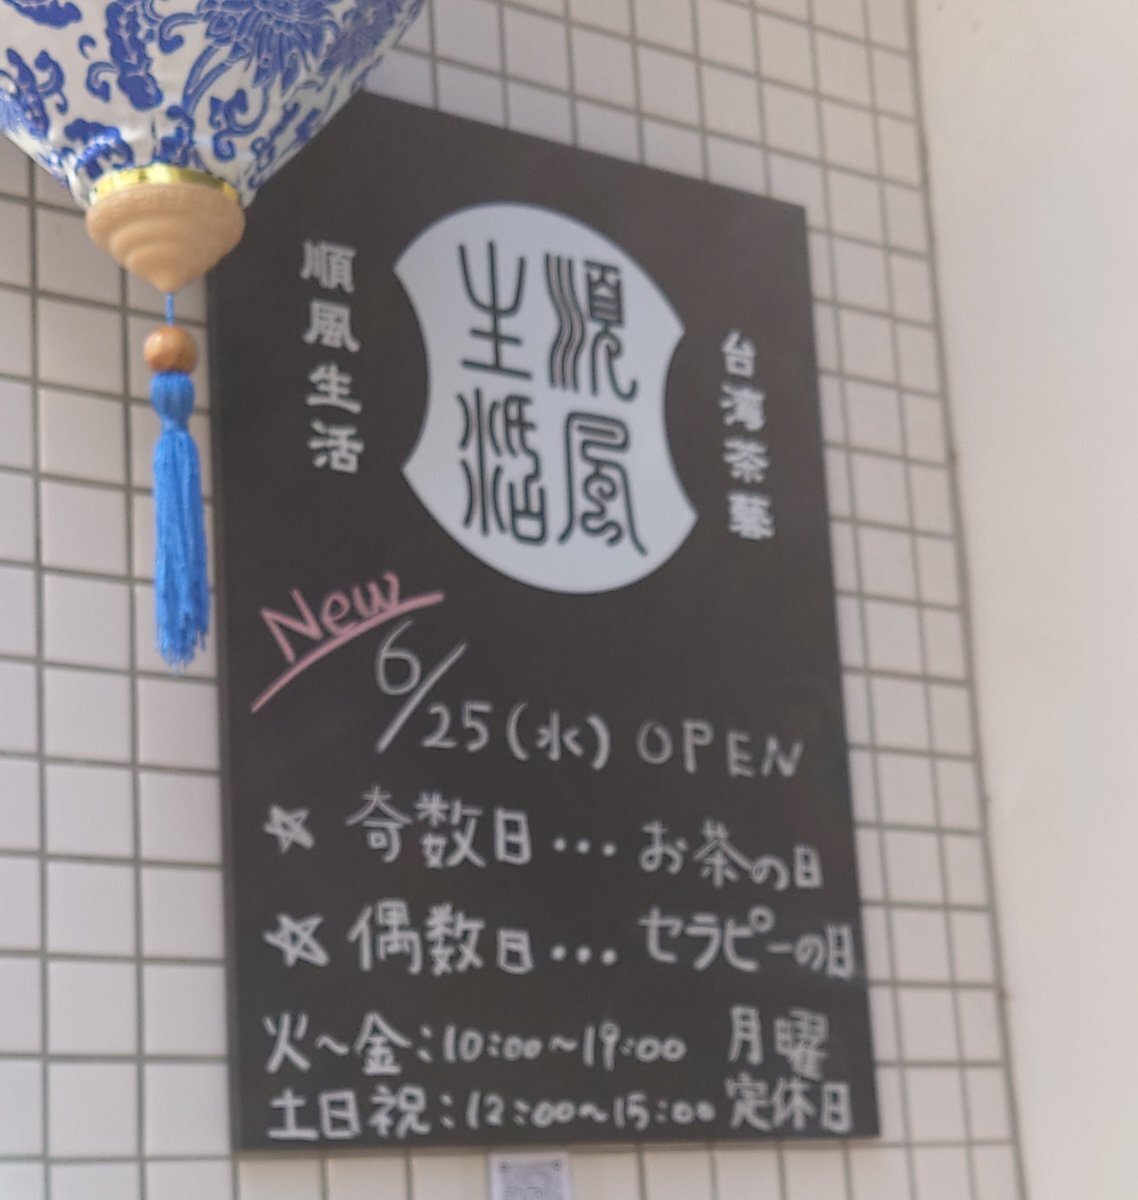 台湾茶藝
順風生活
順風生活
New
6/25(水) OPEN
☆ 奇数日…お茶の日
☆ 偶数日…セラピーの日
火～金:10:00～19:00 月曜
土日祝:12:00～15:00 定休日